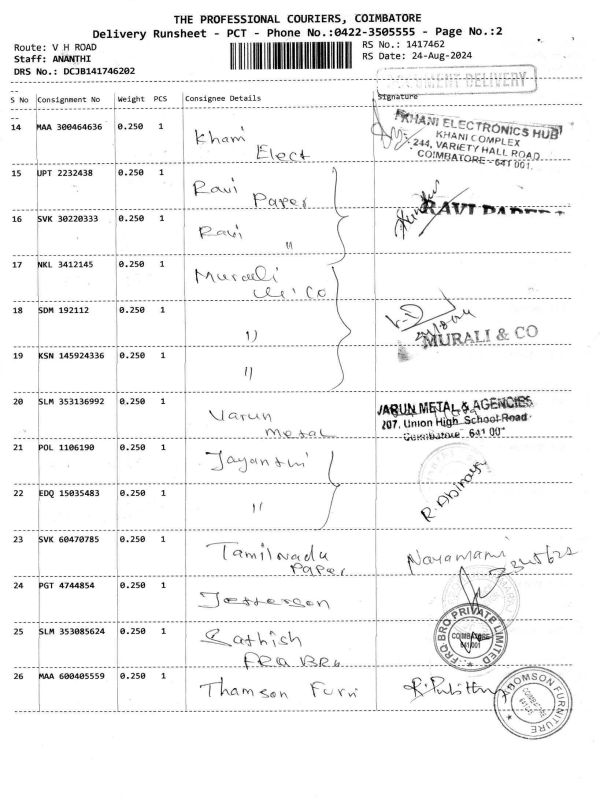 THE PROFESSIONAL COURIERS, COIMBATORE
Delivery Runsheet - PCT - Phone No.:0422-3505555 - Page No.:2
Route: V H ROAD
RS No.: 1417462
Staff: ANANTHI
RS Date: 24-Aug-2024
DRS No.: DCJB141746202
DOCUMENT DELIVERY
S No Consignment No Weight PCS Consignee Details Signature
14 MAA 300464636 0.250 1 Khani
Elect
KHANI ELECTRONICS HUB
KHANI COMPLEX
244, VARIETY HALL ROAD
COIMBATORE - 641 001.
15 UPT 2232438 0.250 1 Ravi
Paper
RAVI PAPER
16 SVK 30220333 0.250 1 Ravi "
17 NKL 3412145 0.250 1 Murali
& Co
18 SDM 192112 0.250 1 "
MURALI & CO
19 KSN 145924336 0.250 1 "
20 SLM 353136992 0.250 1 Varun
metal
VARUN METAL & AGENCIES
207, Union High School Road
Coimbatore 641 001
21 POL 1106190 0.250 1 Jayanthi
22 EDQ 15035483 0.250 1 "
R. Abinaya
23 SVK 60470785 0.250 1 Tamilnadu
Paper
24 PGT 4744854 0.250 1 Jefferson
25 SLM 353085624 0.250 1 Sathish
FRQ BRO
FRQ BRO PRIVATE LIMITED
COIMBATORE
641 001
26 MAA 600405559 0.250 1 Thamson Furni
THOMSON FURNITURE
COIMBATORE